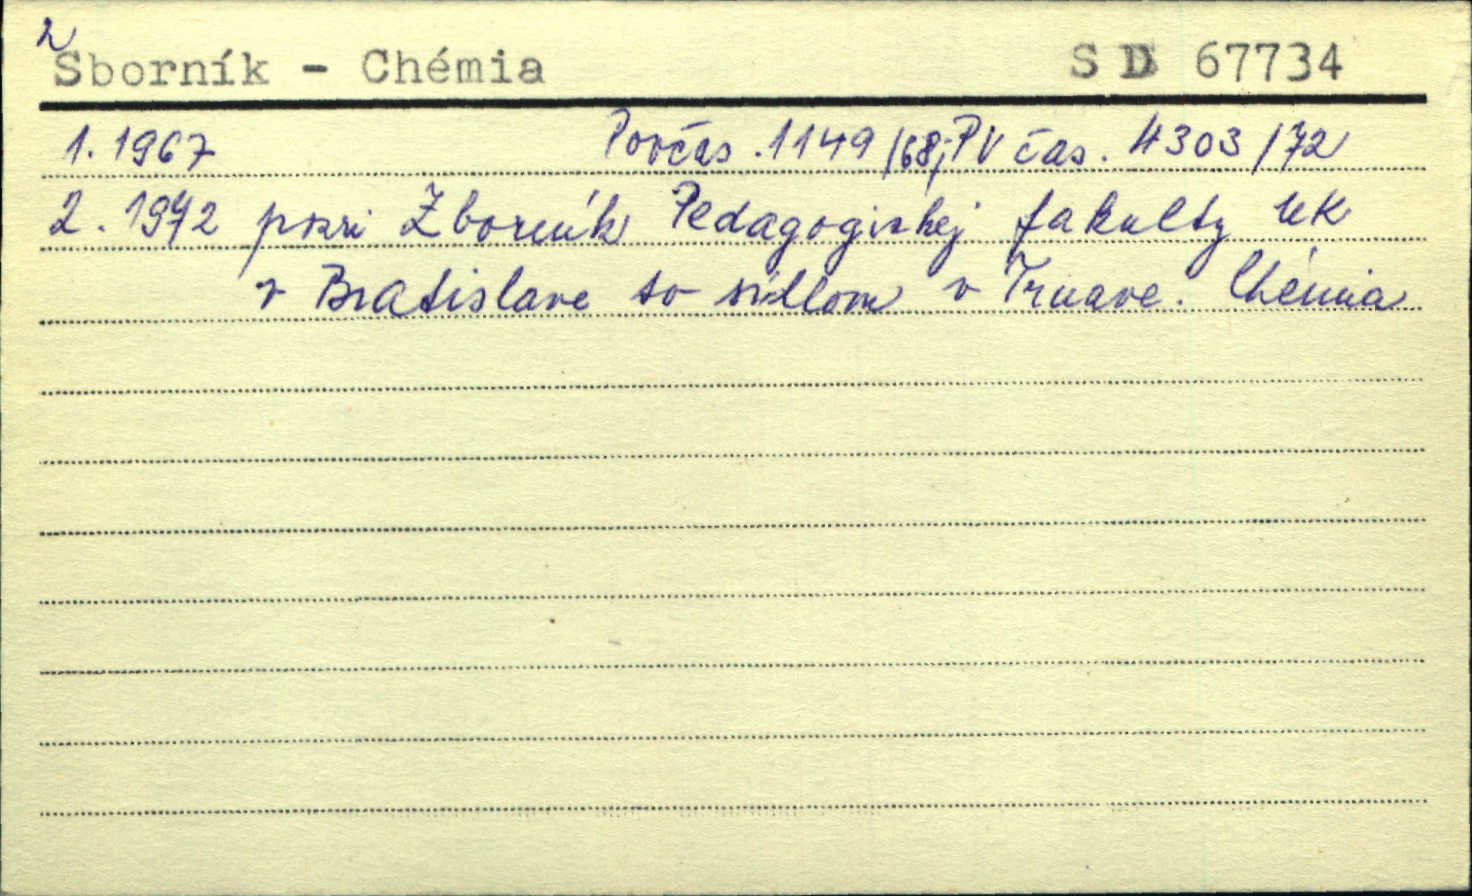 2
Sborník - Chémia SD 67734
1.1967 Povčas. 1149/68; PV čas. 4303/72
2.1972 pozri Zborník Pedagogickej fakulty UK
v Bratislave so sídlom v Trnave. Chémia